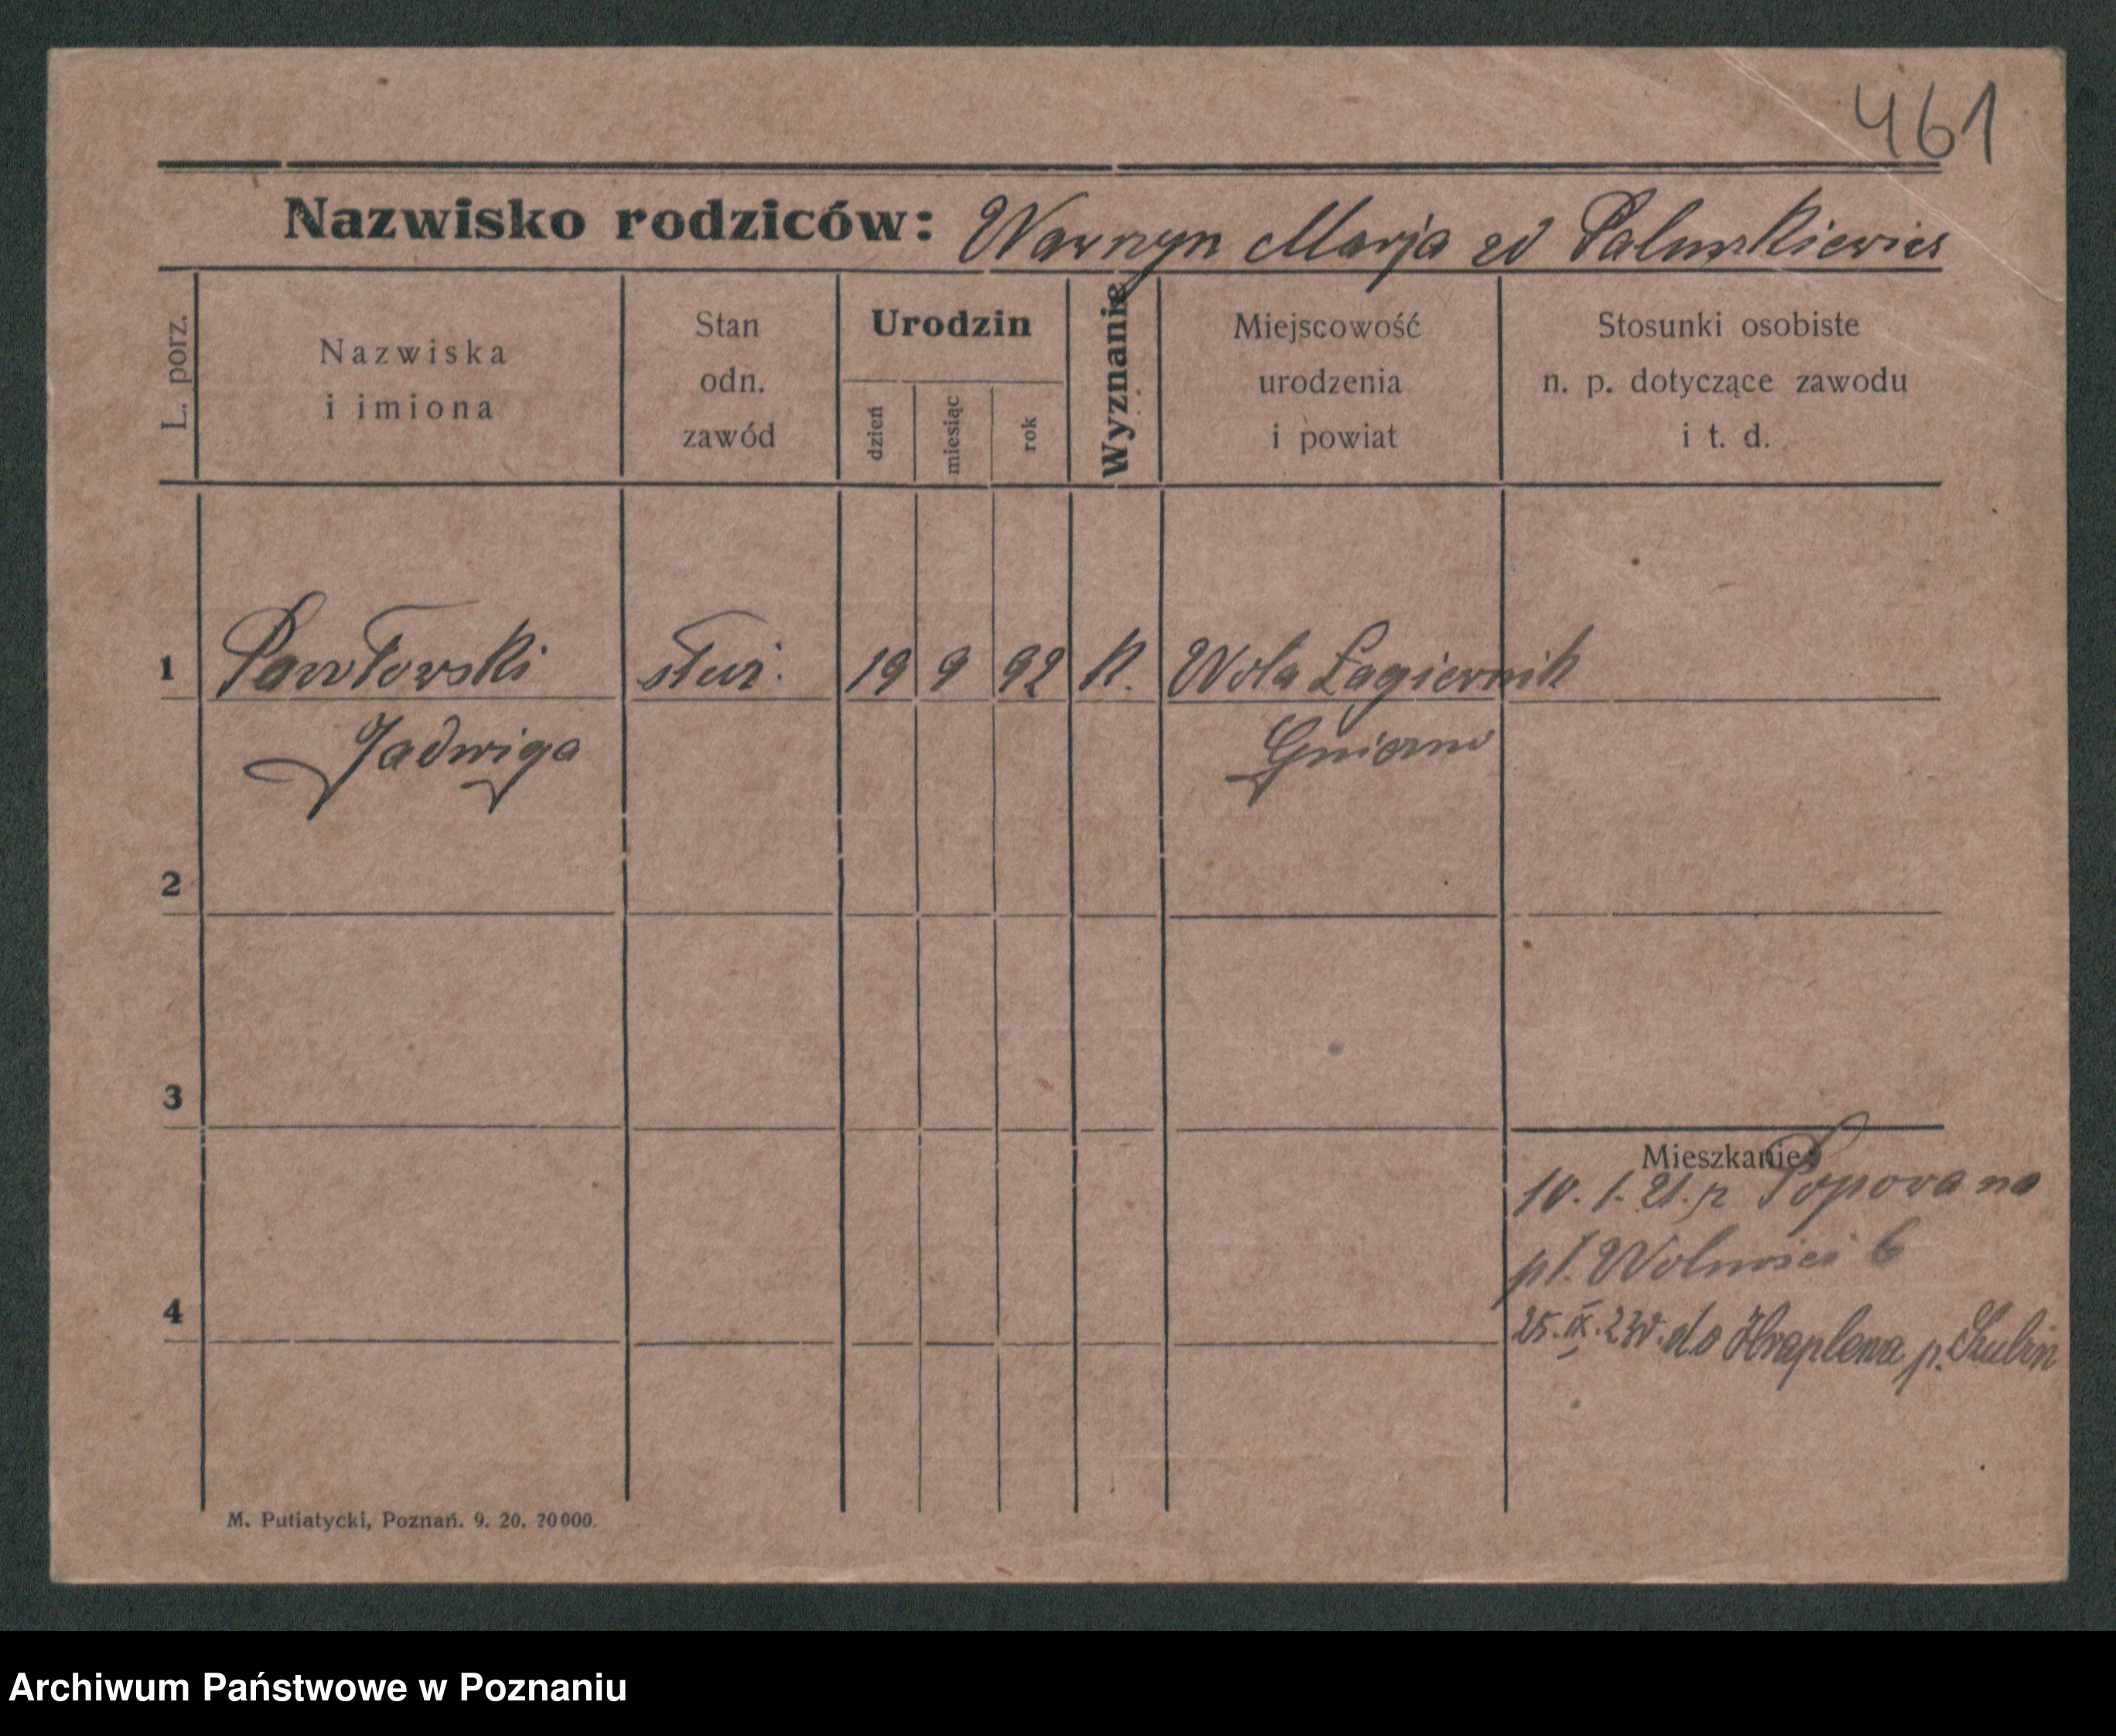 461
Nazwisko rodziców: Wawrzyn Marja zd Paluszkiewicz
L. porz.
Nazwiska
i imiona
Stan
odn.
zawód
Urodzin
dzień
miesiąc
rok
Wyznanie
Miejscowość
urodzenia
i powiat
Stosunki osobiste
n. p. dotyczące zawodu
i t. d.
1 Pawłowski służ. 19 9 92 k. Wola Łagiewnik
Jadwiga Gniezno
2
3
Mieszkanie:
10. 1. 21. z Popowa na
pl. Wolności 6
4
25. IX. 23 do p. Szubin
M. Putiatycki, Poznań. 9. 20. 20000.
Archiwum Państwowe w Poznaniu